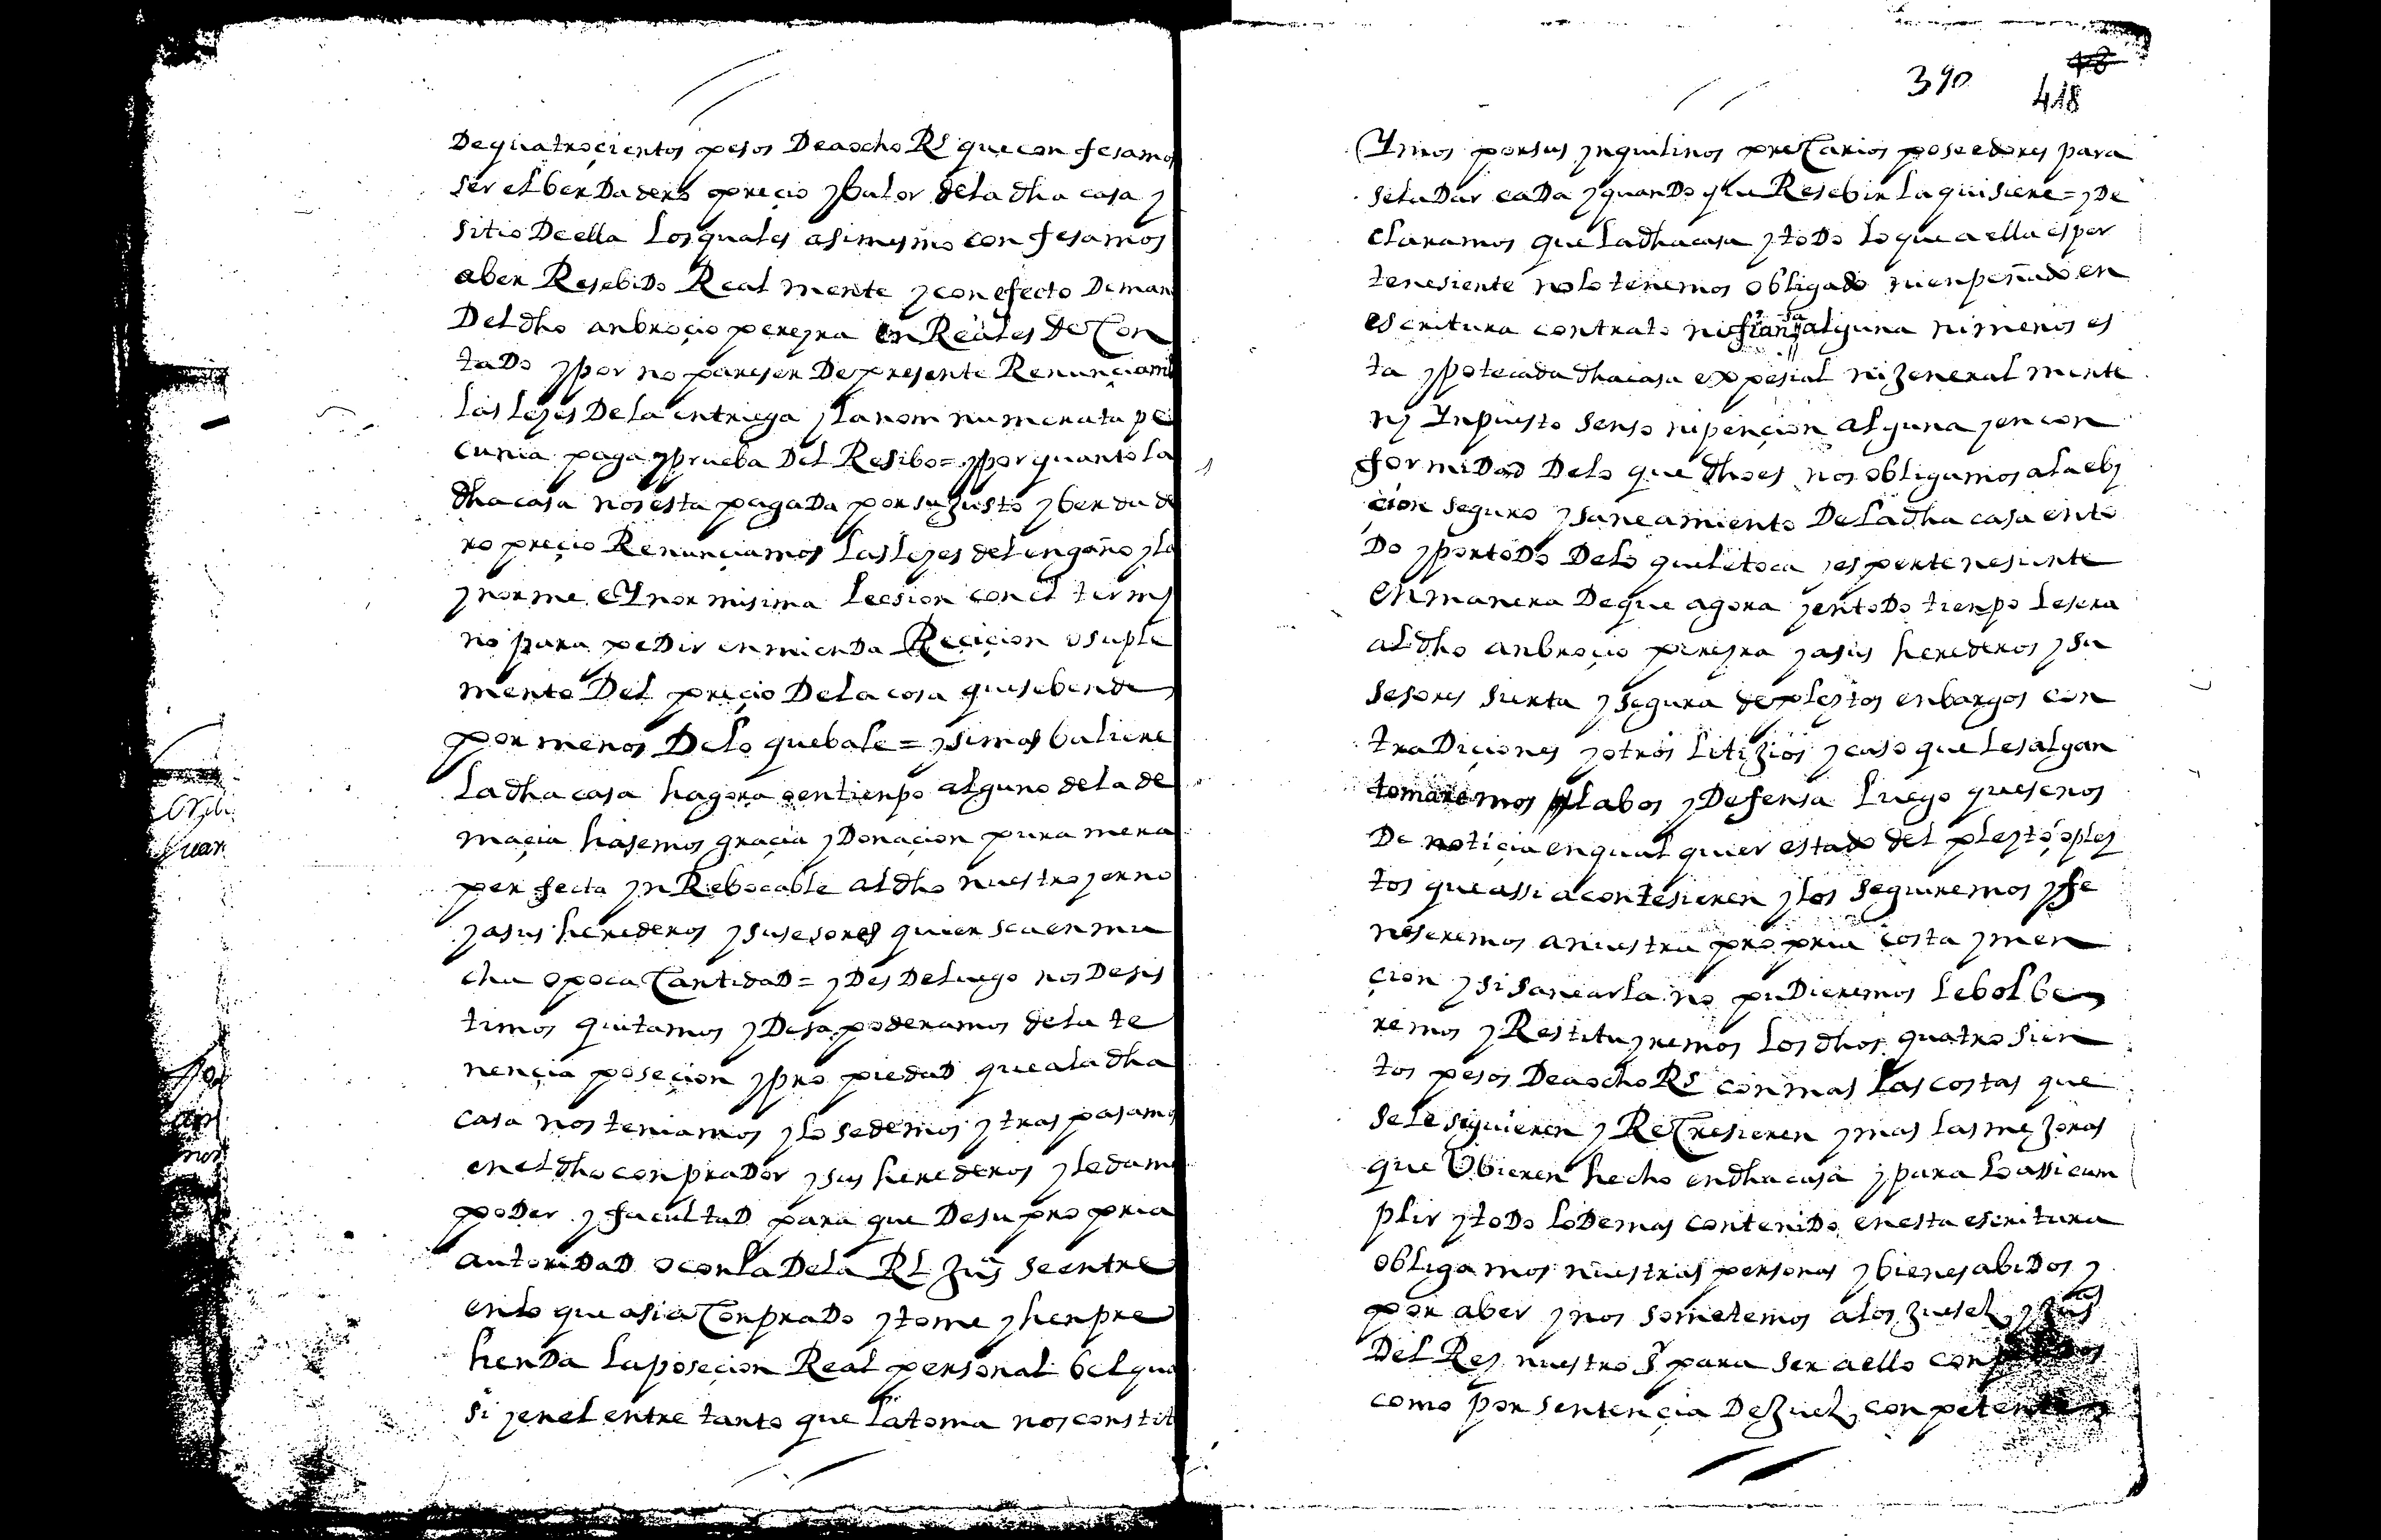 De quatroçientos pesos De aocho Rs que con fesamos
ser el berDadero preçio y balor de la dha casa y
sitio De ella Los quales asimesmo con fesamos
aber ResebiDo Real mente y con efecto De man
Del dho anbroçio pereyra en Reales de Con
taDo y por no pareser De presente Renunçiam
las leyes De la entriega y la nom numerata pe
cunia paga y prueba Del Resibo = y por quanto la
dha casa nos esta pagaDa por su justo y berda de
ro preçio Renunçiamos las leyes del engaño y la
ynorme e Ynormisima leesion con el termi
no para peDir enmienDa Reçiçion o suple
mento Del preçio De la cosa que se bende
por menos De lo que bale = y si mas baliere
La dha casa hagora o en tienpo alguno de la de
maçia hasemos graçia y Donaçion pura mera
perfecta yn Rebocable al dho nuestro yerno
y a sus herederos y susesores quier sea en mu
cha o poca Cantidad = y Des De luego nos Desis
timos quitamos y Desapoderamos de la te
nençia poseçion y pro piedad que a la dha
casa nos teniamos y lo sedemos y tras pasamos
en el dho conpraDor y sus herederos y le damos
poDer y facultaD para que De su pro pria
autoriDaD o con la De la Rl Jusa se entre
en lo que asi a ConpraDo y tome y henpre
henDa la poseçion Real personal bel qua
si y en el entre tanto que la toma nos constit
390
48
418
Ymos por sus ynquilinos preCarios poseedores para
se la Dar caDa y quanDo que Resebir la quisiere = y De
claramos que la dha casa y toDo lo que a ella es per
tenesiente no lo tenemos obligado ni enpeñado en
escritura contrato ni fiansa alguna ni menos es
ta ypotecada dha casa expesial ni jeneral mente
ny Ynpuesto senso ni pençion alguna y en con
formiDad De lo que dho es nos obligamos a la eby
çion seguro y saneamiento De la dha casa en to
Do y por toDo De lo que le toca y es pertenesiente
en manera De que agora y en toDo tienpo le sera
al dho anbroçio pereyra y a sus herederos y su
sesores sierta y segura de pleytos enbargos con
traDiçiones y otros litijios y caso que le salgan
tomaremos la bos y Defensa luego que se nos
De notiçia en qual quier estado del pleyto o pley
tos que assi acontesieren y los seguiremos y fe
neseremos a nuestra pro pria costa y men
çion y si sanearla no puDieremos le bol be
remos y Restituyremos los dhos quatro sien
tos pesos De aocho Rs con mas las costas que
se le siguieren y ReCresieren y mas las mejoras
que Ubieren hecho en dha casa y para lo assi cum
plir y toDo lo Demas conteniDo en esta escritura
obligamos nuestras personas y bienes abiDos y
por aber y nos sometemos a los jueses y jusas
Del Rey nuestro Sr para ser a ello
como por sentençia De juez conpetente